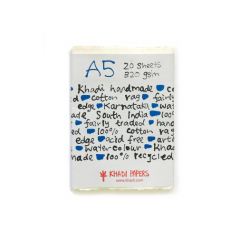 A5 20 Sheets
320 gsm
Khadi handmade
cotton rag fairly
edge Karnataka
made South India
fairly traded hand
100% cotton rag
edge acid free arti
watercolour Khadi
made 100% recycled
KHADI PAPERS
www.khadi.com